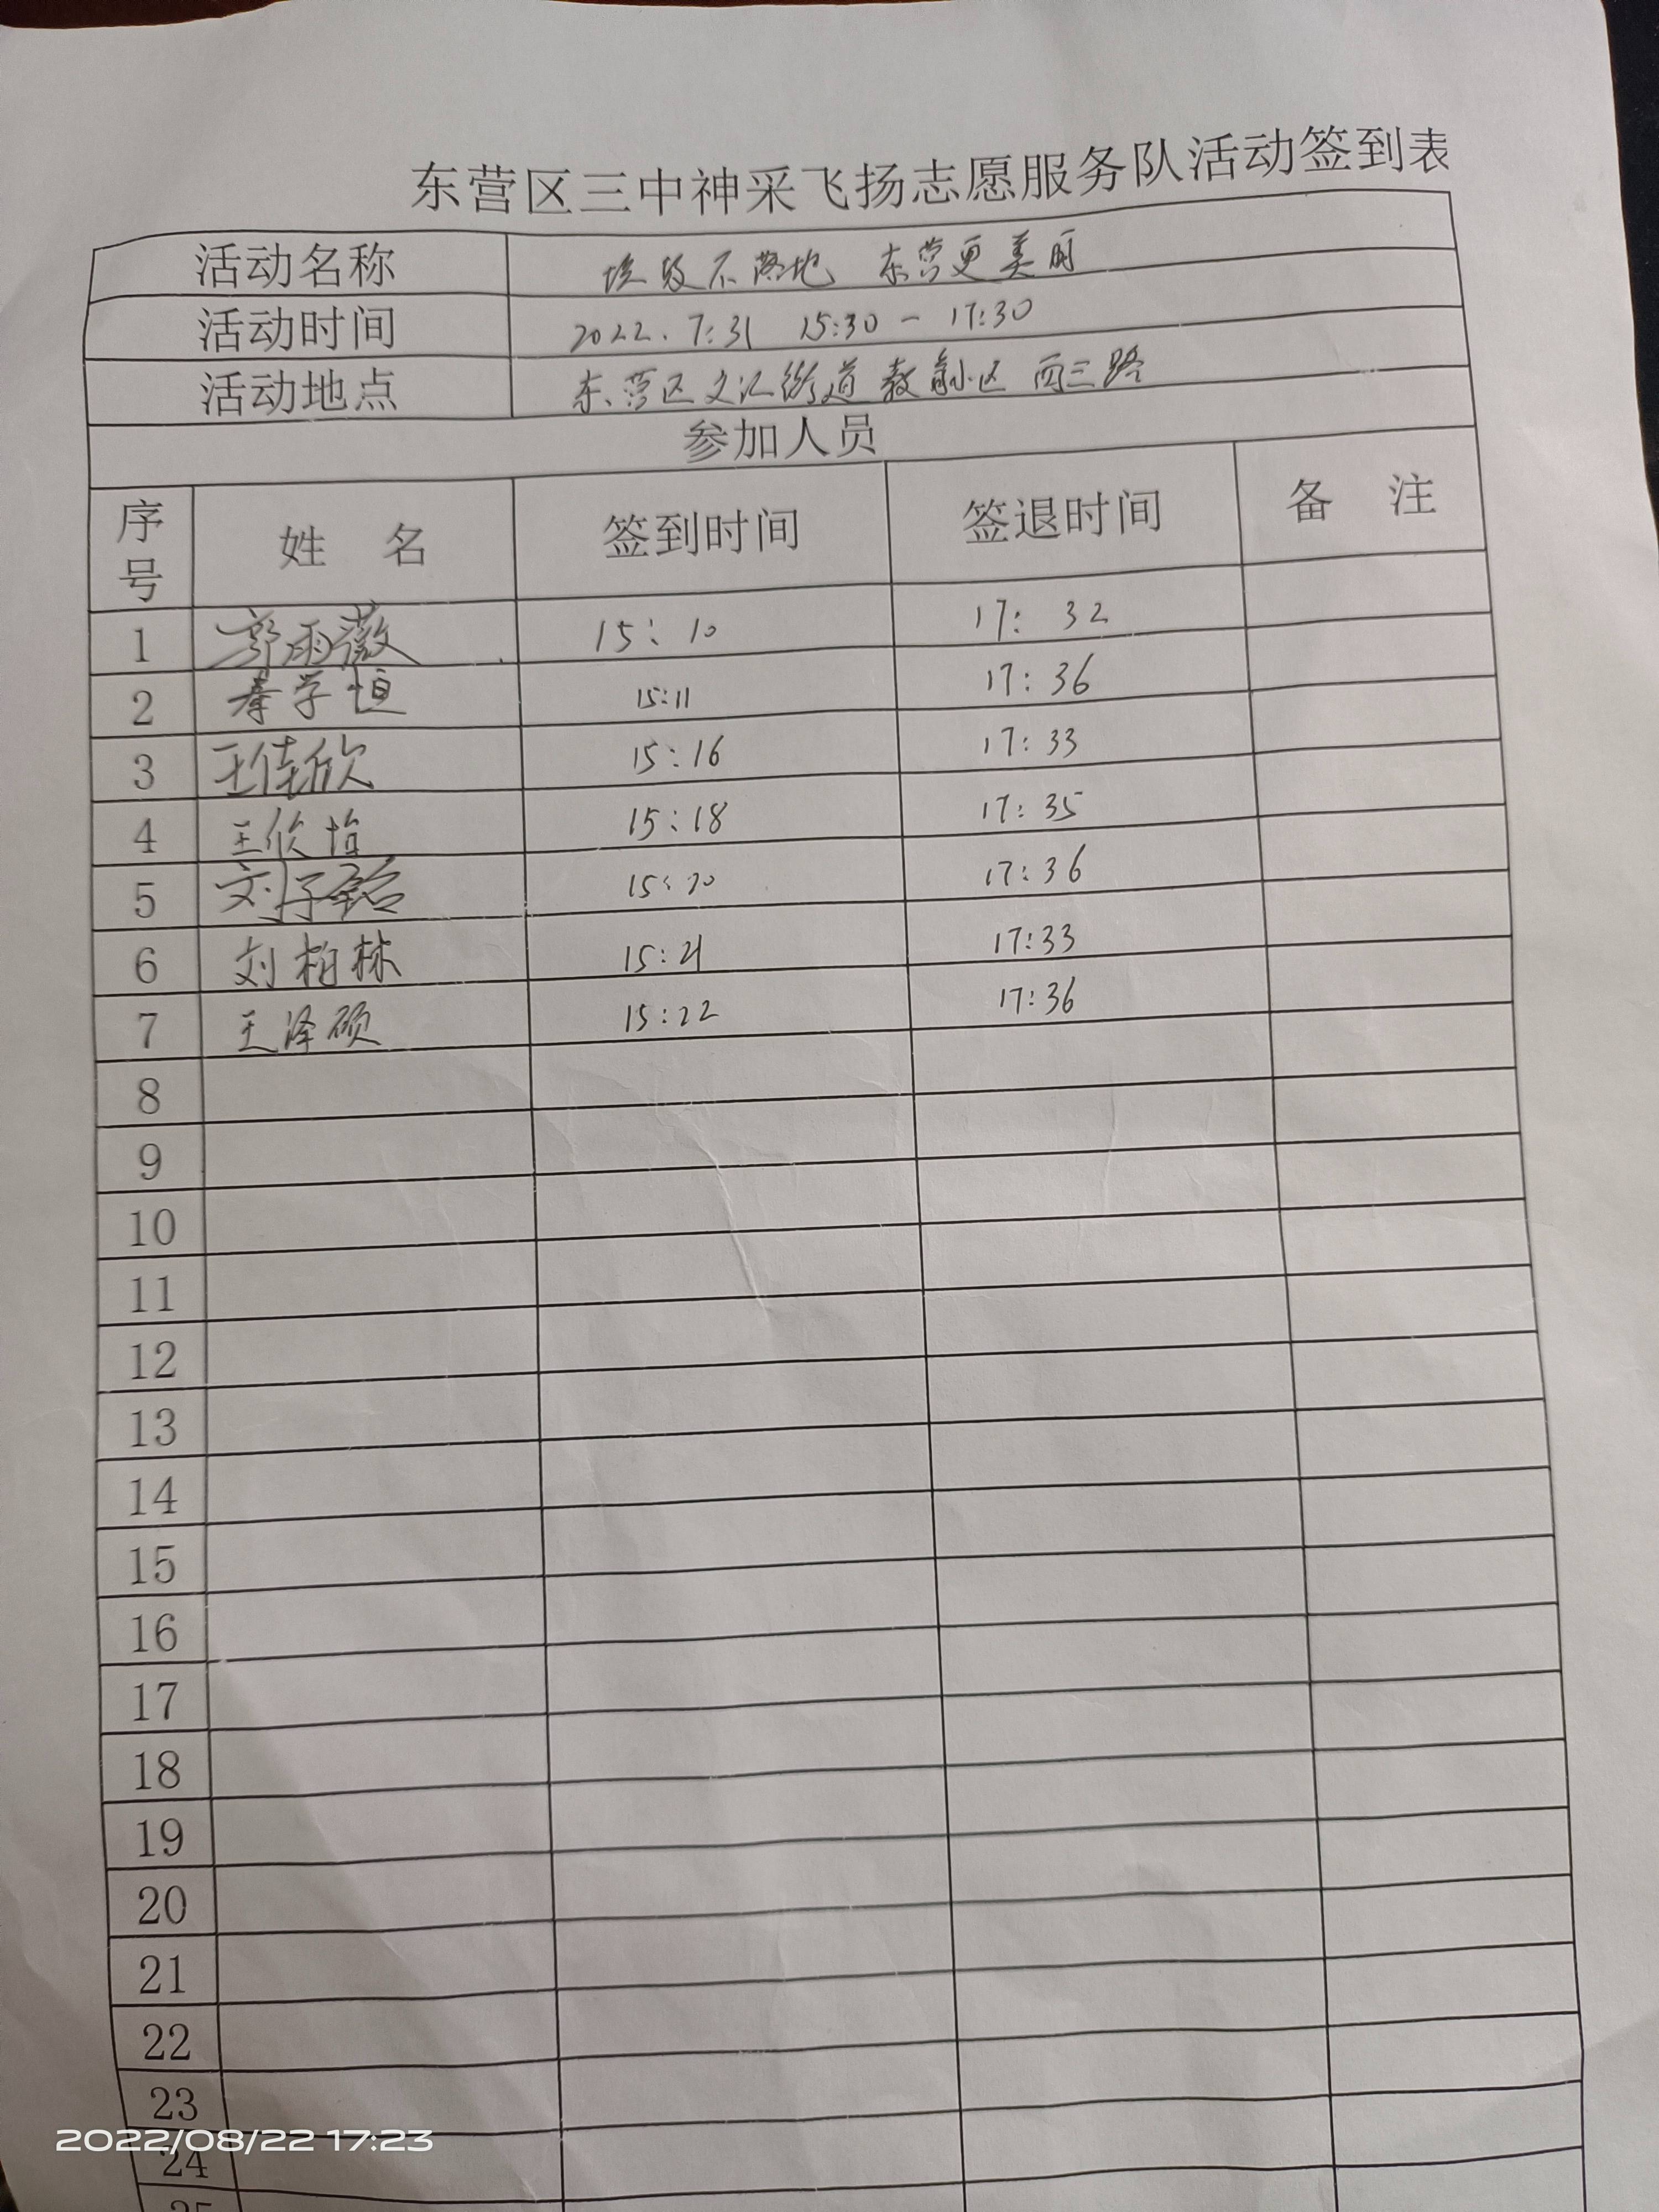 东营区三中神采飞扬志愿服务队活动签到表
活动名称 垃圾不落地 东营更美丽
活动时间 2022.7.31 15:30-17:30
活动地点 东营区文汇街道 小区 西三路
参加人员
序号 姓 名 签到时间 签退时间 备 注
1 郭雨薇 15:10 17:32
2 学恒 15:11 17:36
3 王佳欣 15:16 17:33
4 王欣怡 15:18 17:35
5 刘子铭 15:20 17:36
6 刘柏林 15:21 17:33
7 王泽硕 15:22 17:36
8
9
10
11
12
13
14
15
16
17
18
19
20
21
22
23
2022/08/22 17:23
24
25